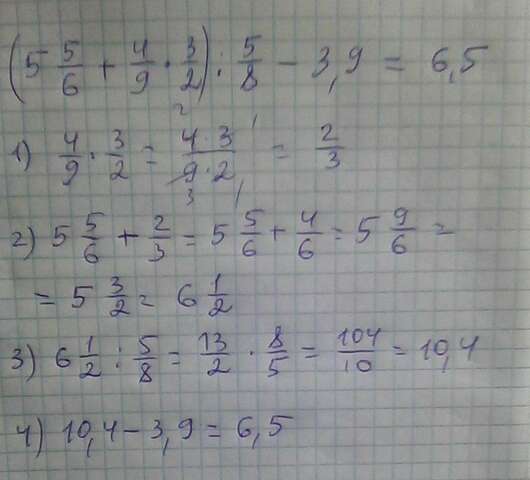 (5 5/6 + 4/9 · 3/2) : 5/8 - 3,9 = 6,5
1) 4/9 · 3/2 = 4·3/9·2 = 2/3
2 1
3 1
2) 5 5/6 + 2/3 = 5 5/6 + 4/6 = 5 9/6 =
= 5 3/2 = 6 1/2
3) 6 1/2 : 5/8 = 13/2 · 8/5 = 104/10 = 10,4
4) 10,4 - 3,9 = 6,5